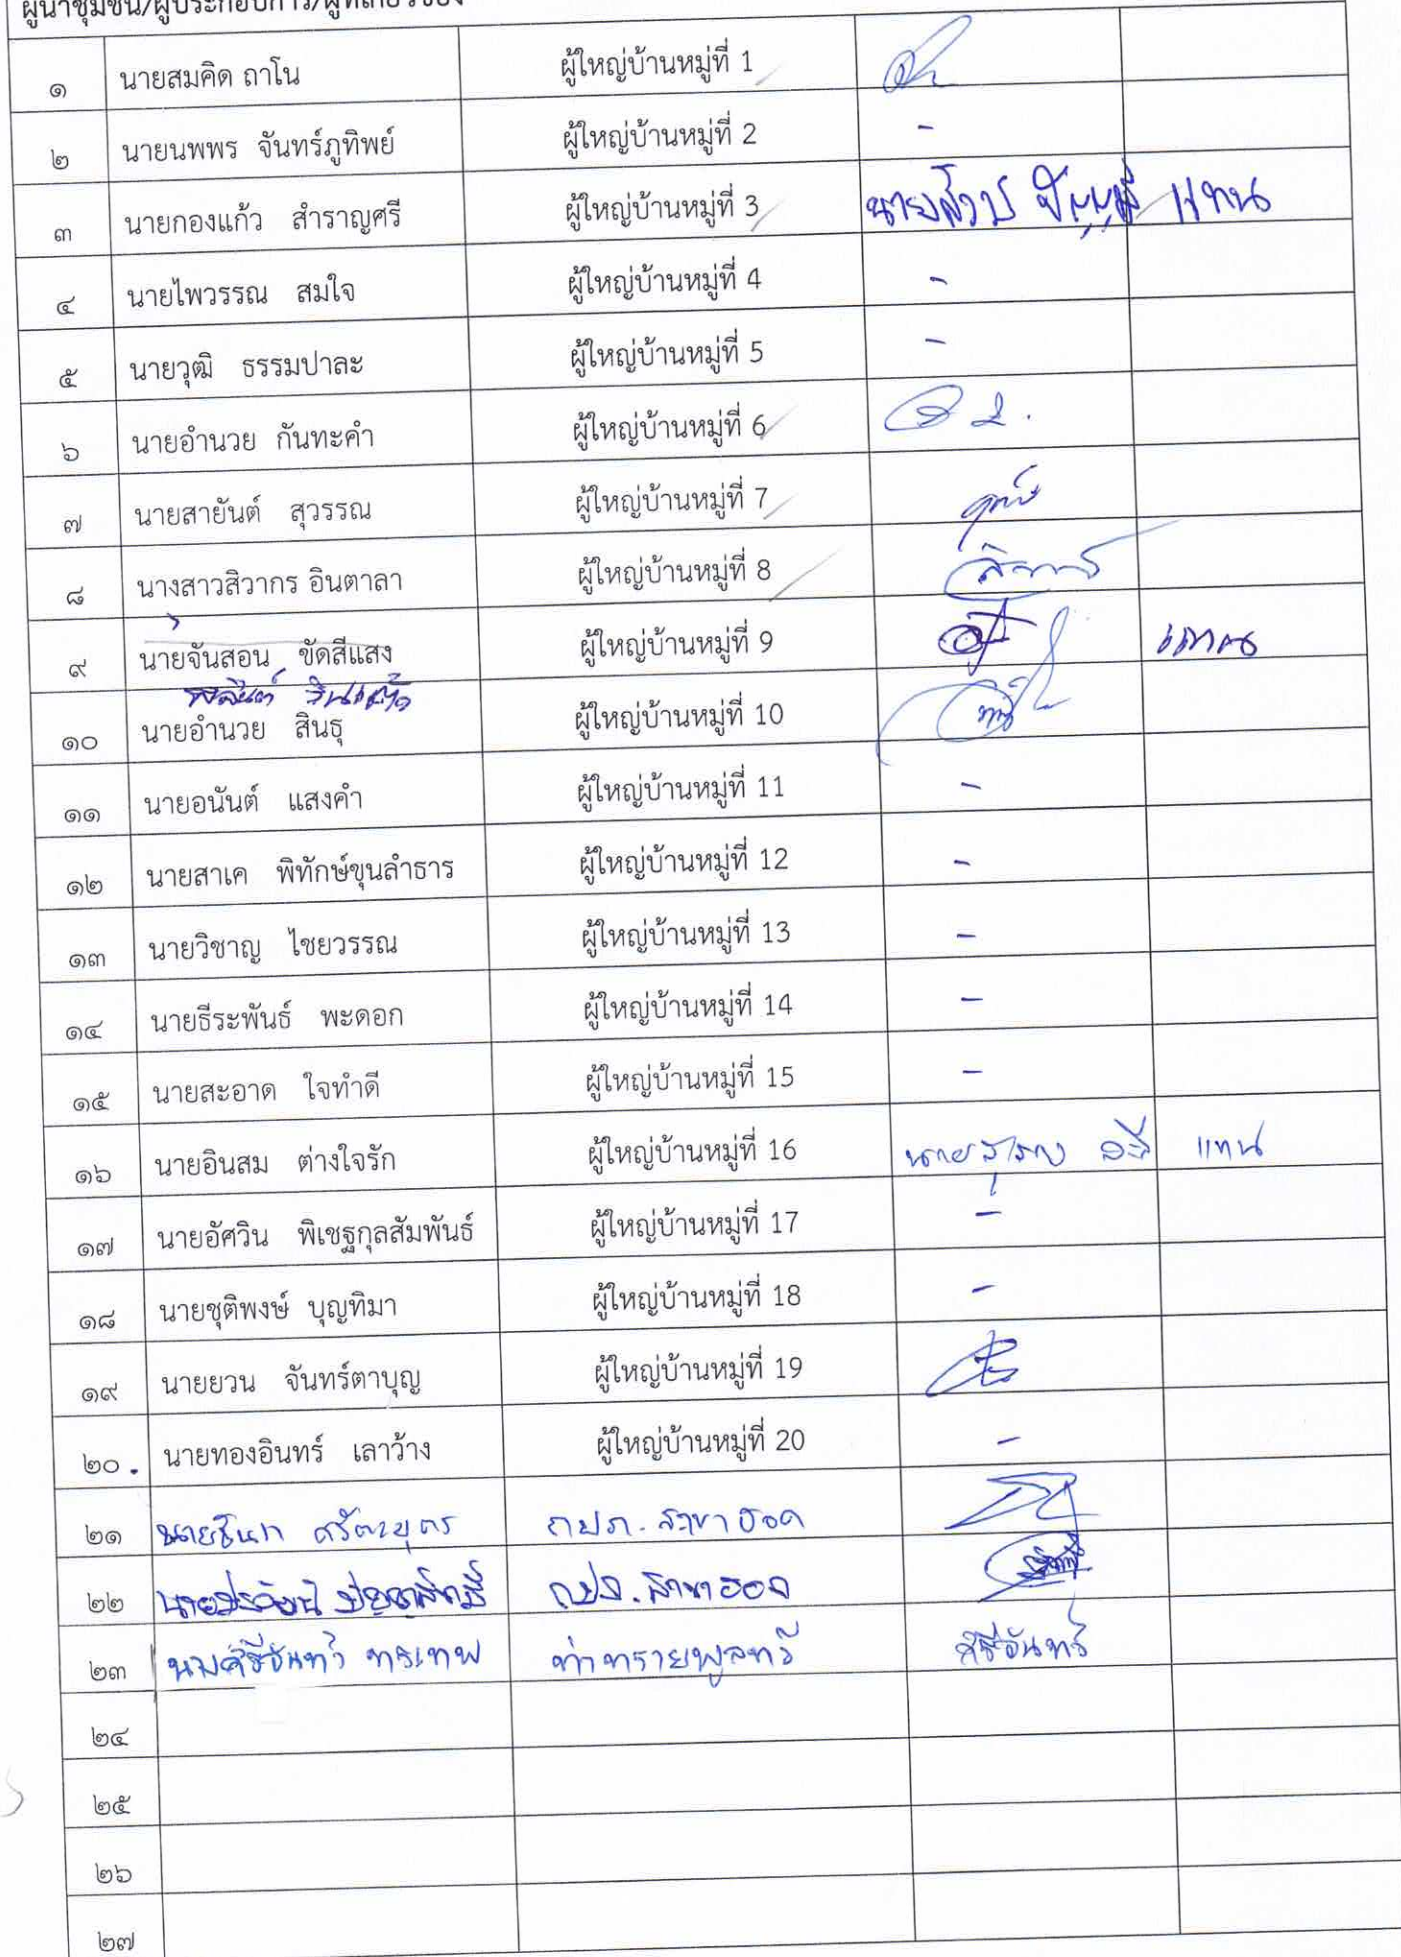 ผู้นำชุมชน/ผู้ประกอบการ/ผู้ที่เกี่ยวข้อง
๑ นายสมคิด ถาโน ผู้ใหญ่บ้านหมู่ที่ 1
๒ นายนพพร จันทร์ภูทิพย์ ผู้ใหญ่บ้านหมู่ที่ 2 -
๓ นายกองแก้ว สำราญศรี ผู้ใหญ่บ้านหมู่ที่ 3 แทน
๔ นายไพวรรณ สมใจ ผู้ใหญ่บ้านหมู่ที่ 4 -
๕ นายวุฒิ ธรรมปาละ ผู้ใหญ่บ้านหมู่ที่ 5 -
๖ นายอำนวย กันทะคำ ผู้ใหญ่บ้านหมู่ที่ 6
๗ นายสายันต์ สุวรรณ ผู้ใหญ่บ้านหมู่ที่ 7
๘ นางสาวสิวากร อินตาลา ผู้ใหญ่บ้านหมู่ที่ 8
๙ นายจันสอน ขัดสีแสง ผู้ใหญ่บ้านหมู่ที่ 9 แทน
๑๐ นายอำนวย สินธุ ผู้ใหญ่บ้านหมู่ที่ 10
๑๑ นายอนันต์ แสงคำ ผู้ใหญ่บ้านหมู่ที่ 11 -
๑๒ นายสาเค พิทักษ์ขุนลำธาร ผู้ใหญ่บ้านหมู่ที่ 12 -
๑๓ นายวิชาญ ไชยวรรณ ผู้ใหญ่บ้านหมู่ที่ 13 -
๑๔ นายธีระพันธ์ พะดอก ผู้ใหญ่บ้านหมู่ที่ 14 -
๑๕ นายสะอาด ใจทำดี ผู้ใหญ่บ้านหมู่ที่ 15 -
๑๖ นายอินสม ต่างใจรัก ผู้ใหญ่บ้านหมู่ที่ 16 แทน
๑๗ นายอัศวิน พิเชฐกุลสัมพันธ์ ผู้ใหญ่บ้านหมู่ที่ 17 -
๑๘ นายชุติพงษ์ บุญทิมา ผู้ใหญ่บ้านหมู่ที่ 18 -
๑๙ นายยวน จันทร์ตาบุญ ผู้ใหญ่บ้านหมู่ที่ 19
๒๐. นายทองอินทร์ เลาว้าง ผู้ใหญ่บ้านหมู่ที่ 20 -
๒๑ กปภ. สาขาฮอด
๒๒ กปภ. สาขาฮอด
๒๓ ท่าทรายพูลทวี
๒๔
๒๕
๒๖
๒๗